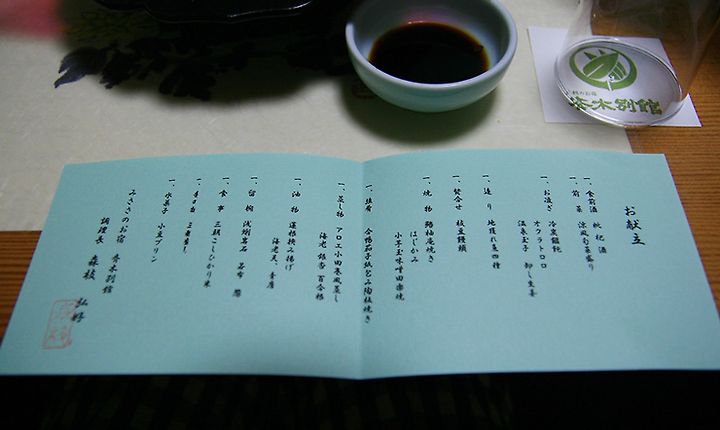 お献立
一、食前酒 枇杷酒
一、前菜 涼風旬菜盛り
一、お凌ぎ 冷製饂飩
オクラトロロ
温泉玉子 卸し生姜
一、造り 地獲れ魚四種
一、焚合せ 枝豆饅頭
一、焼物 鱸柚庵焼き
はじかみ
小芋玉味噌田楽焼
一、蒸し物 アロエ小田巻風蒸し
海老 銀杏 百合根
一、油物 蓮根挟み揚げ
海老天、青唐
一、留椀
一、食事 三朝こしひかり米
一、香の物 三種盛り
一、水菓子 小豆プリン
みささのお宿 斉木別館
調理長 森枝 弘好
斉木別館